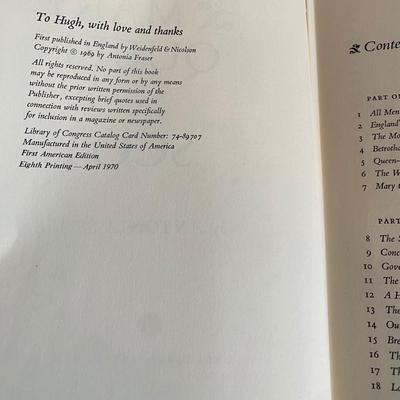 To Hugh, with love and thanks
First published in England by Weidenfeld & Nicolson
Copyright © 1969 by Antonia Fraser
All rights reserved. No part of this book
may be reproduced in any form or by any means
without the prior written permission of the
Publisher, excepting brief quotes used in
connection with reviews written specifically
for inclusion in a magazine or newspaper.
Library of Congress Catalog Card Number: 74-89707
Manufactured in the United States of America
First American Edition
Eighth Printing—April 1970
Conte
PART ON
1 All Men
2 England'
3 The Mo
4 Betrotha
5 Queen-
6 The W
7 Mary t
PART
8 The S
9 Conc
10 Gove
11 The
12 A H
13 The
14 Ou
15 Bre
16 Th
17 Th
18 Lo